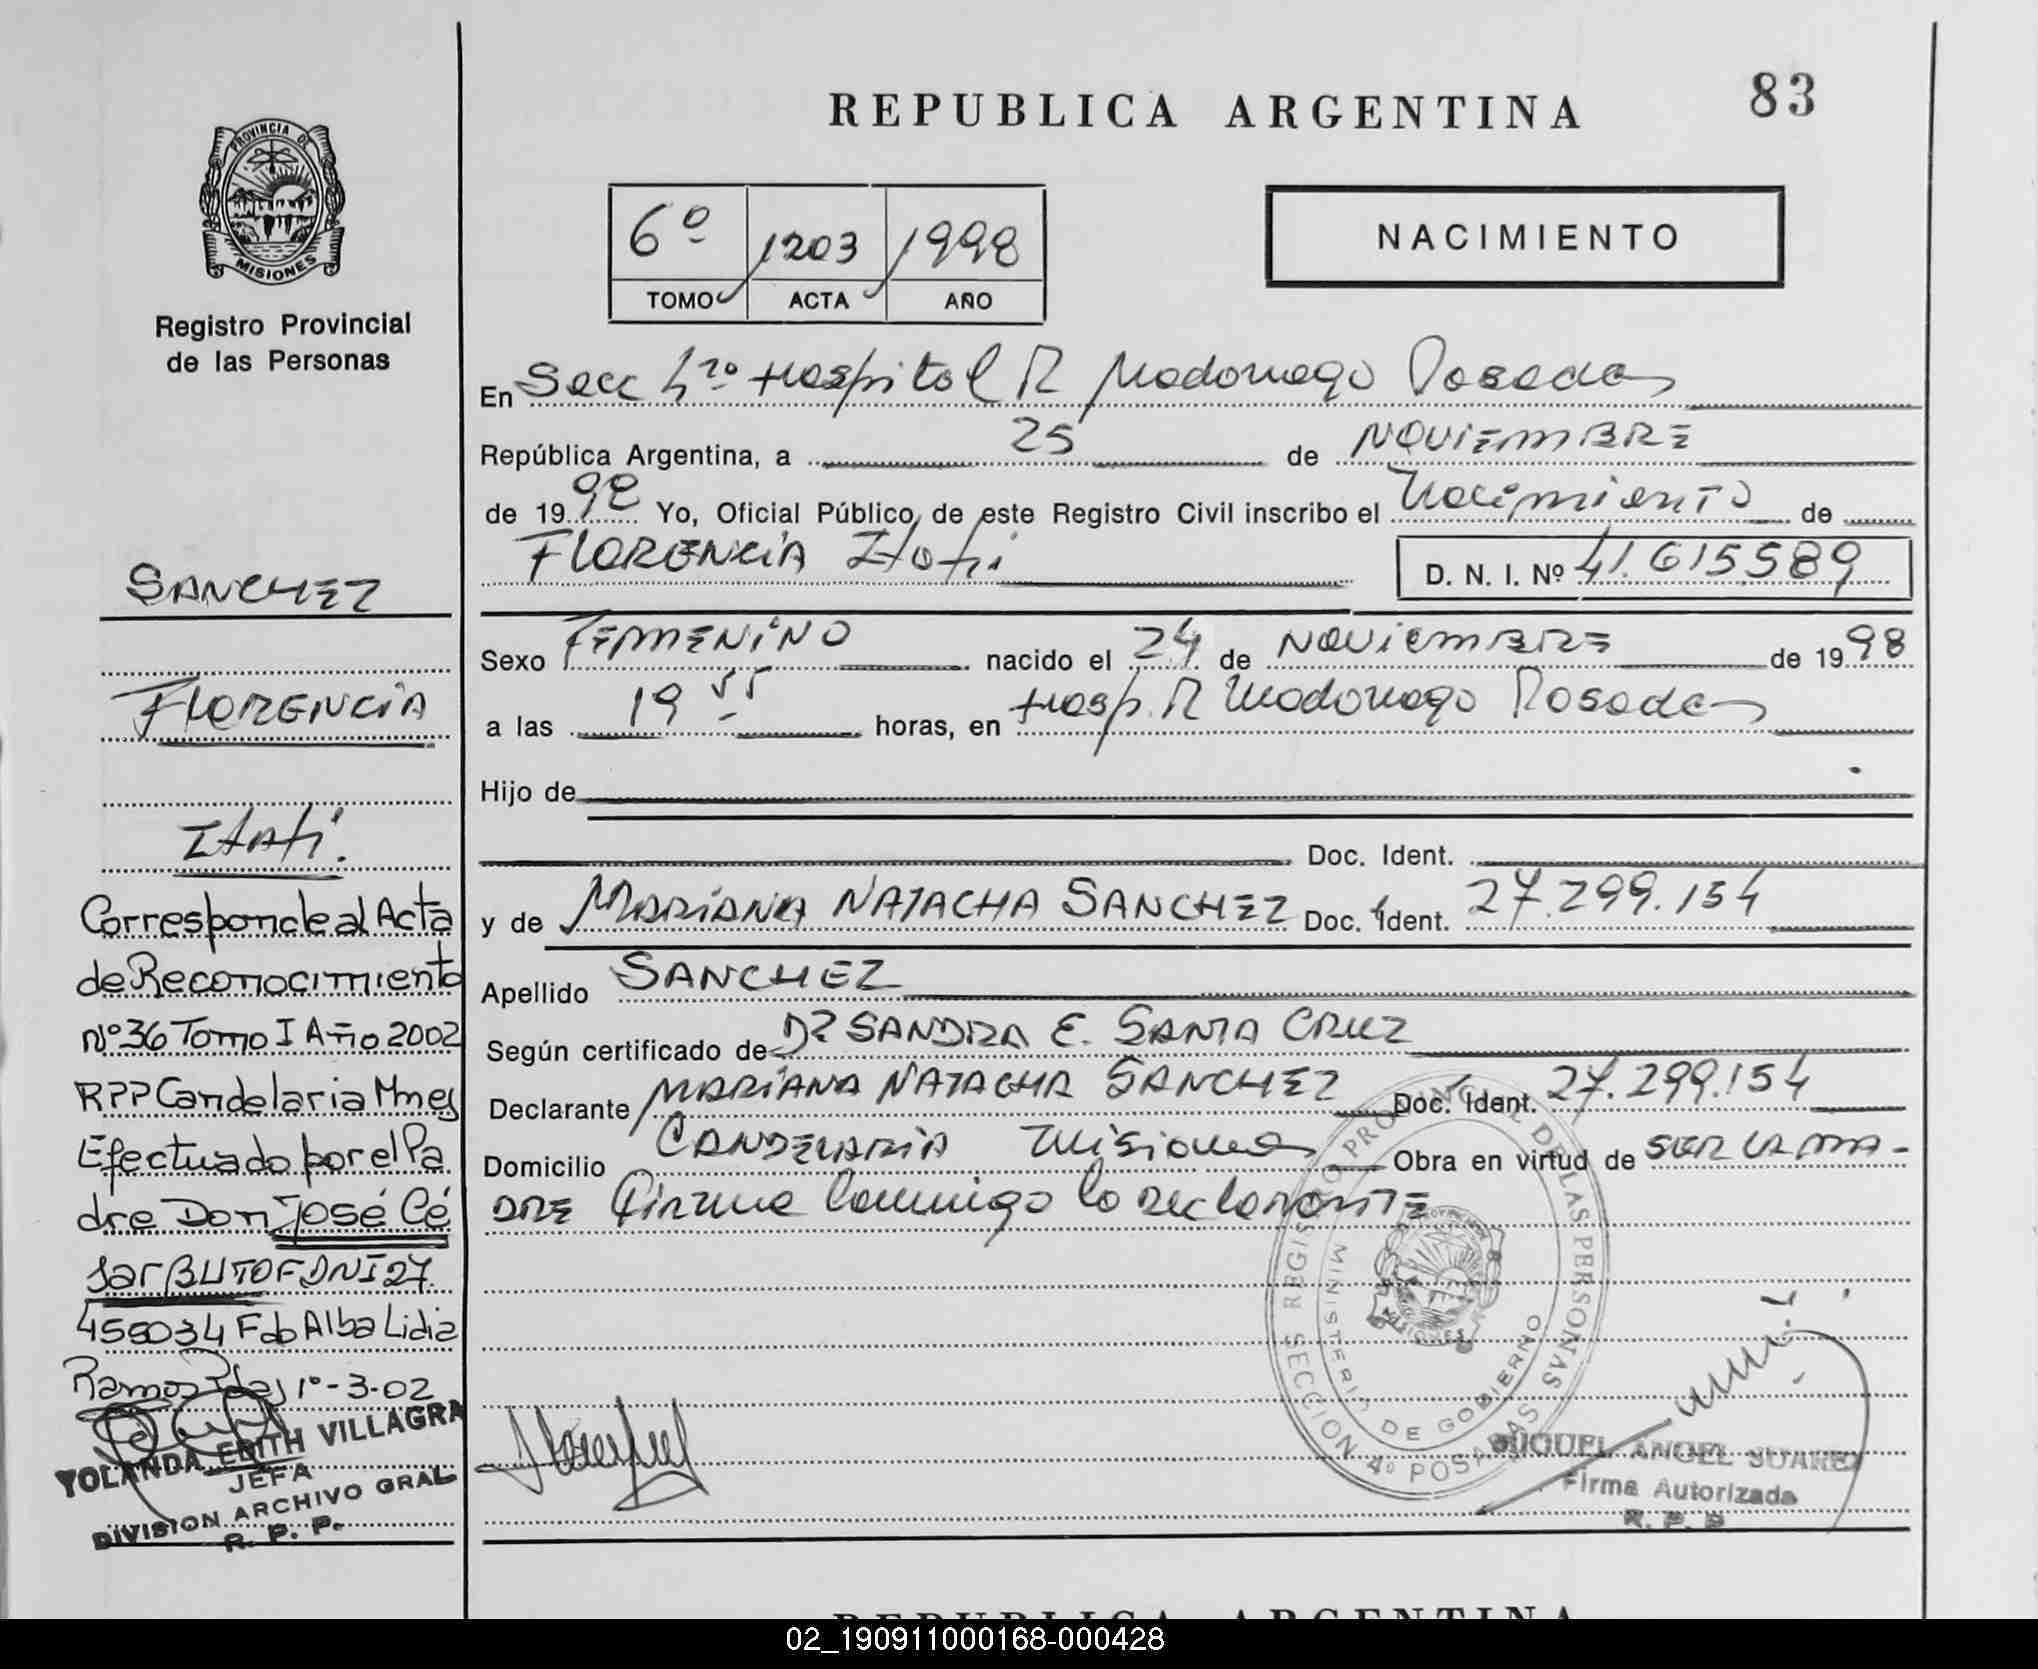 REPUBLICA ARGENTINA
83
PROVINCIA DE
MISIONES
Registro Provincial
de las Personas
6º 1203 1998
TOMO ACTA AÑO
NACIMIENTO
En Secc 4ta Hospital R Madariaga Posadas
República Argentina, a 25 de NOVIEMBRE
de 1998 Yo, Oficial Público de este Registro Civil inscribo el Nacimiento de
FLORENCIA Itatí D. N. I. Nº 41.615589
Sexo FEMENINO nacido el 24 de NOVIEMBRE de 1998
a las 19 55 horas, en Hosp. R Madariaga Posadas
Hijo de
Doc. Ident.
y de MARIANA NATACHA SANCHEZ Doc. Ident. 27.299.154
Apellido SANCHEZ
Según certificado de Dra SANDRA E. SANTA CRUZ
Declarante MARIANA NATACHA SANCHEZ Doc. Ident. 27.299.154
Domicilio CANDELARIA Misiones Obra en virtud de SER LA MA-
DRE Firma conmigo la declarante
SANCHEZ
FLORENCIA
Itatí.
Corresponde al Acta
de Reconocimiento
Nº 36 Tomo I Año 2002
RPP Candelaria Mnes
Efectuado por el Pa
dre Don José Cé
sar BUTOF DNI 27.
455034 Fdo Alba Lidia
Ramos Pdas 1º-3-02
YOLANDA EDITH VILLAGRA
JEFA
DIVISION ARCHIVO GRAL
R. P. P.
REGISTRO PROVINCIAL DE LAS PERSONAS
MINISTERIO DE GOBIERNO
SECCION 4º POSADAS
MIGUEL ANGEL SUAREZ
Firma Autorizada
R. P. P.
REPUBLICA ARGENTINA
02_190911000168-000428